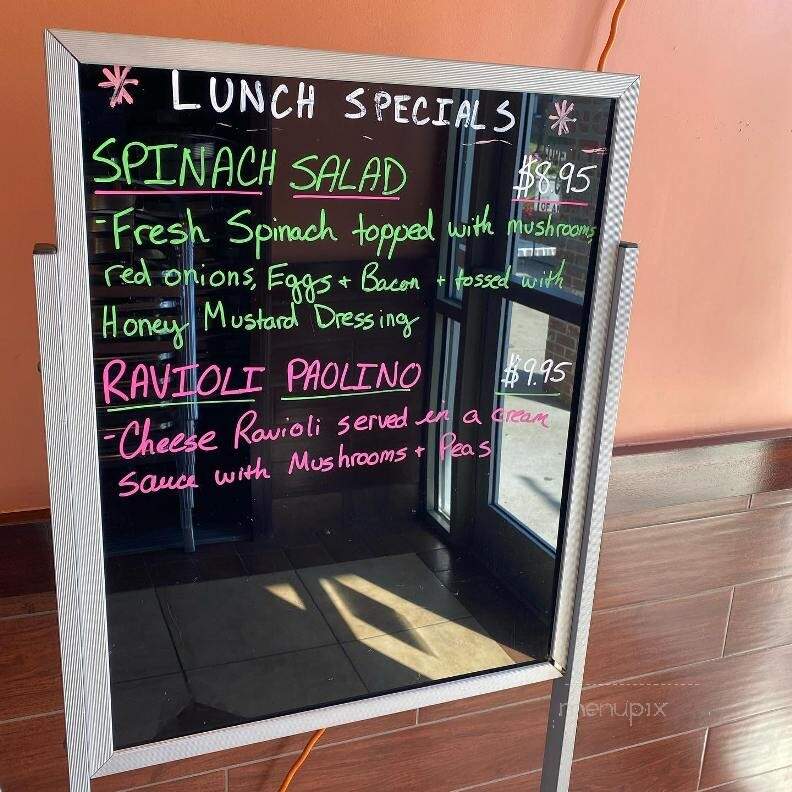 * LUNCH SPECIALS *
SPINACH SALAD $8.95
-Fresh Spinach topped with mushrooms,
red onions, Eggs + Bacon + tossed with
Honey Mustard Dressing
RAVIOLI PAOLINO $9.95
-Cheese Ravioli served in a cream
sauce with Mushrooms + Peas
menupix